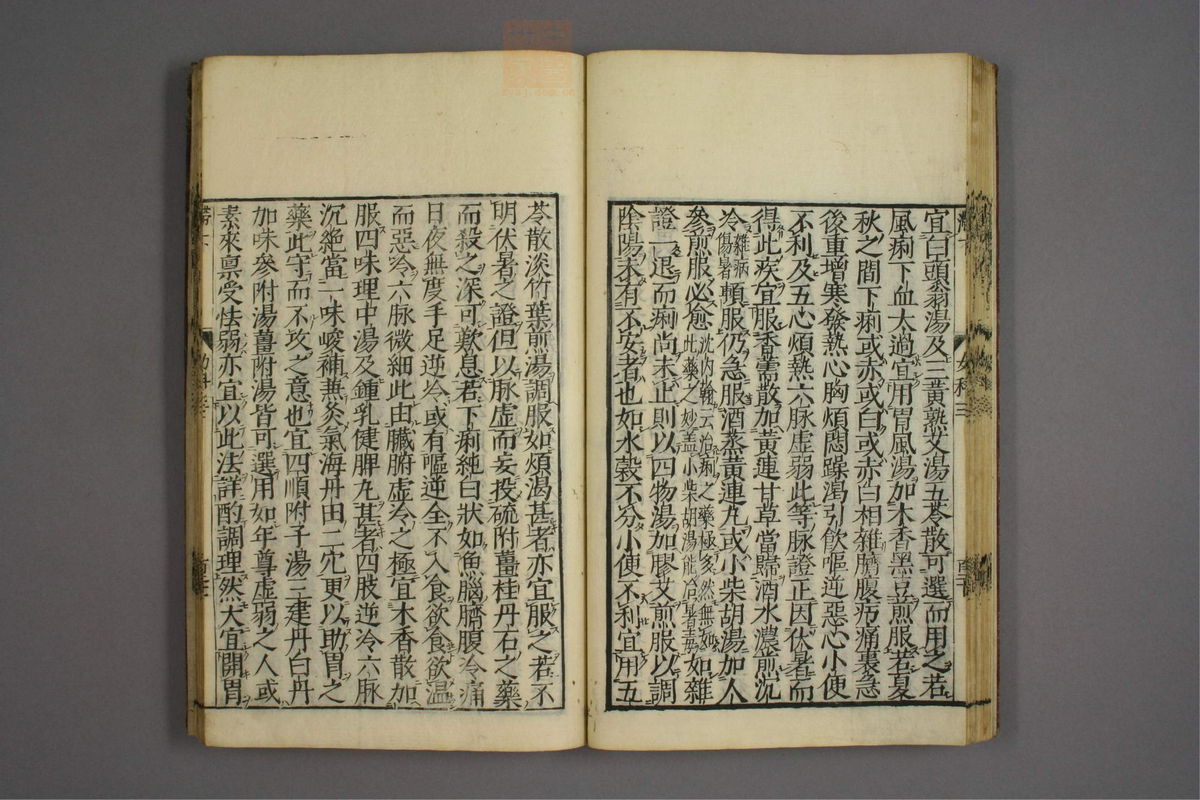 宜白頭翁湯及三黃熟艾湯五苓散可選而用之若
風痢下血太過宜用胃風湯加木香黑豆煎服若夏
秋之間下痢或赤或白或赤白相雜臍腹疞痛裏急
後重增寒發熱心胸煩悶躁渴引飲嘔逆惡心小便
不利及五心煩熱六脉虛弱此等脉證正因伏暑而
得此疾宜服香薷散加黃連甘草當歸酒水濃煎沉
冷雜病傷暑頓服仍急服酒蒸黃連丸或小柴胡湯加人
參煎服必愈沈內翰云治痢之藥極多然無如此藥之妙盖小柴胡湯能冷暑毒如雜
證一退而痢尚未止則以四物湯加膠艾煎服以調
陰陽未有不安者也如水穀不分小便不利宜用五
苓散淡竹葉煎湯調服如煩渴甚者亦宜服之若不
明伏暑之證但以脉虛而妄投硫附薑桂丹石之藥
而殺之深可歎息若下痢純白狀如魚腦臍腹冷痛
日夜無度手足逆冷或有嘔逆全不入食欲食欲温
而惡冷六脉微細此由臟腑虛冷之極宜木香散加
服四味理中湯及鍾乳健脾丸甚者四肢逆冷六脉
沉絶當一味峻補兼灸氣海丹田二穴更以助胃之
藥此守而不攻之意也宜四順附子湯三建丹白丹
加味參附湯薑附湯皆可選用如年尊虛弱之人或
素來禀受怯弱亦宜以此法詳酌調理然大宜開胃
女科三